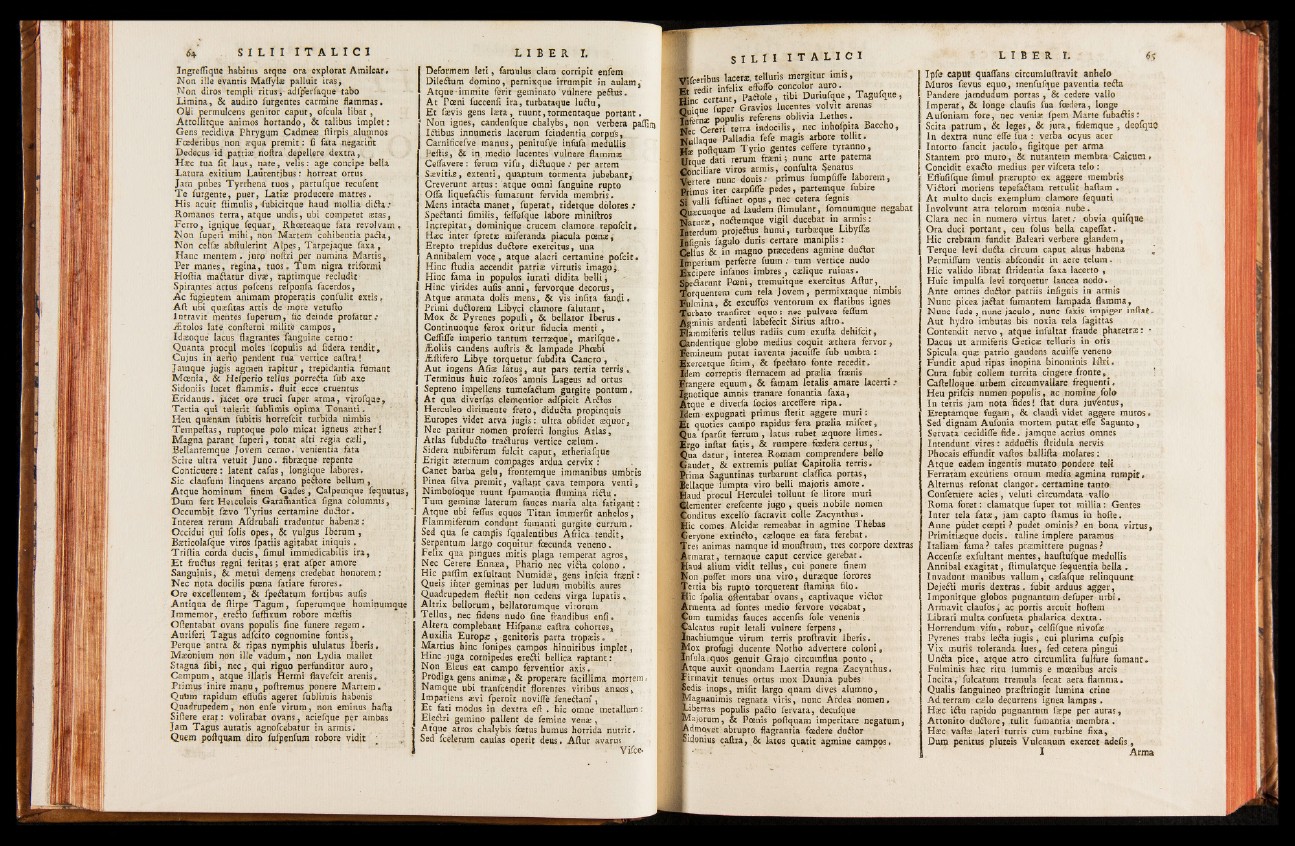 64 SILII ITALICI
Ingressique habitus atque ora explorat Amilcar.
Non ille evantis Massylæ palluit iras,
Non diros templi ritus, adspersaque tabo
Limina, & audito surgentes carmine flammas.
Olli permulcens genitor caput, oscula libat,
Attollitque animos hortando, & talibus implet:
Gens recidiva Phrygum Cadmeæ stirpis alumnos
Fœderibus non æqua premit: si fata negarint
Dedecus id patriæ nostra depellere dextra,
Hæc tua sit laus, nate, velis: age concipe bella
Latura exitium Laurentibus: horreat ortus
Jam pubes Tyrrhena tuos, partusque recusent
Te surgente, puer, Latiæ producere matres.
His acuit stimulis, subicitque haud mollia dicta:
Romanos terra, atque undis, ubi competet ætas,
Ferro, ignique sequar, Rhœteaque fata revolvam.
Non superi mihi, non Martem cohibentia pacta,
Non celsæ obstulerint Alpes, Tarpejaque saxa,
Hanc mentem. juro nostri per numina Martis,
Per manes, regina, tuos. Tum nigra triformi
Hostia mactatur divæ, raptimque recludit
Spirantes artus poscens responsa sacerdos,
Ac fugientem animam properatis consulit extis.
Ast ubi quæsitas artis de more vetusto
Intravit mentes superum, sic deinde profatur:
Ætolos late consterni milite campos,
Idæosque lacus flagrantes sanguine cerno:
Quanta procul moles scopulis ad sidera tendit,
Cujus in aerio pendent tua vertice castra!
Jamque jugis agmen rapitur, trepidantia fumant
Mœnia, & Hesperio tellus porrecta sub axe
Sidoniis lucet flammis. fluit ecce cruentus
Eridanus. jacet ore truci super arma, virosque,
Tertia qui tulerit sublimis opima Tonanti.
Heu quænam subitis horrescit turbida nimbis
Tempestas, ruptoque polo micat igneus æther!
Magna parant superi, tonat alti regia cæli,
Bellantemque Jovem cerno. venientia fata
Scire ultra vetuit Juno. fibræque repente
Conticuere: latent casus, longique labores.
Sic clausum linquens arcano pectore bellum,
Atque hominum finem Gades, Calpemque sequutus,
Dum fert Herculeis Garamantica signa columnis,
Occumbit sævo Tyrius certamine ductor.
Interea rerum Asdrubali traduntur habenæ:
Occidui qui solis opes, & vulgus Iberum,
Bæticolasque viros spatiis agitabat iniquis.
Tristia corda ducis, simul immedicabilis ira,
Et fructus regni feritas; erat asper amore
Sanguinis, & metui demens credebat honorem:
Nec nota docilis pœna satiare furores.
Ore excellentem, & spectatum fortibus ausis
Antiqua de stirpe Tagum, superumque hominumque
Immemor, erecto suffixum robore mœstis
Ostentabat ovans populis sine funere regem.
Auriferi Tagus adscito cognomine fontis,
Perque antra & ripas nymphis ululatus Iberis.
Mæonium non ille vadum, non Lydia mallet
Stagna sibi, nec, qui riguo perfunditur auro,
Campum, atque illatis Hermi flavescit arenis.
Primus inire manu, postremus ponere Martem.
Quum rapidum effusis ageret sublimis habenis
Quadrupedem, non ense virum, non eminus hasta
Sistere erat: volitabat ovans, aciesque per ambas
Jam Tagus auratis agnoscebatur in armis.
Quem postquam diro suspensum robore vidit
LIBER I.
Deformem leti, famulus clam corripit ensem
Dilectum domino, pernixque irrumpit in aulam,
Atque immite ferit geminato vulnere pectus.
At Pœni succensi ira, turbataque luctu,
Et sævis gens læta, ruunt, tormentaque portant.
Non ignes, candensque chalybs, non verbera passim
Ictibus innumeris lacerum scindentia corpus,
Carnificesve manus, penitusve infusa medullis
Pestis, & in medio lucentes vulnere flammæ
Cessavere: ferum visu, dictuque: per artem
Sævitiæ, extenti, quantum tormenta jubebant,
Creverunt artus: atque omni sanguine rupto
Ossa liquefactis fumarunt fervida membris.
Mens intacta manet, superat, ridetque dolores:
Spectanti similis, fessosque labore ministros
Increpitat, dominique crucem clamore reposcit.
Hæc inter spretæ miseranda piacula pœnæ,
Erepto trepidus ductore exercitus, una
Annibalem voce, atque alacri certamine poscit.
Hinc studia accendit patriæ virtutis imago,
Hinc fama in populos jurati didita belli,
Hinc virides ausis anni, fervorque decorus,
Atque armata dolis mens, & vis insita fandi.
Primi ductorem Libyci clamore salutant,
Mox & Pyrenes populi, & bellator Iberus.
Continuoque ferox oritur fiducia menti,
Cessisse imperio tantum terræque, marisque.
Æoliis candens austris & lampade Phœbi
Æstifero Libye torquetur subdita Cancro,
Aut ingens Asiæ latus, aut pars tertia terris.
Terminus huic roseos amnis Lageus ad ortus
Septeno impellens tumefactum gurgite pontum.
At qua diversas clementior adspicit Arctos
Herculeo dirimente freto, diducta propinquis
Europes videt arva jugis: ultra obsidet æquor,
Nec patitur nomen proferri longius Atlas,
Atlas subducto tracturus vertice cælum.
Sidera nubiferum fulcit caput, ætheriasque
Erigit æternum compages ardua cervix:
Canet barba gelu, frontemque immanibus umbris
Pinea silva premit, vastant cava tempora venti,
Nimbosoque ruunt spumantia flumina rictu.
Tum geminæ laterum fauces maria alta fatigant:
Atque ubi fessus equos Titan immersit anhelos,
Flammiferum condunt fumanti gurgite currum.
Sed qua se campis squalentibus Africa tendit,
Serpentum largo coquitur fœcunda veneno.
Felix qua pingues mitis plaga temperat agros,
Nec Cerere Ennæa, Phario nec victa colono.
Hic passim exsultant Numidæ, gens inscia fræni:
Queis inter geminas per ludum mobilis aures
Quadrupedem flectit non cedens virga lupatis.
Altrix bellorum, bellatorumque virorum
Tellus, nec fidens nudo sine fraudibus ensi.
Altera complebant Hispanæ castra cohortes,
Auxilia Europæ, genitoris parta tropæis.
Martius hinc sonipes campos hinnitibus implet,
Hinc juga cornipedes erecti bellica raptant:
Non Eleus eat campo ferventior axis.
Prodiga gens animæ, & properare facillima mortem.
Namque ubi transcendit florentes viribus annos,
Impatiens ævi spernit novisse senectam,
Et fati modus in dextra est. hic omne metallum:
Electri gemino pallent de semine venæ,
Atque atros chalybis fœtus humus horrida nutrit.
Sed scelerum causas operit deus. Astur avarus
Visce-
SILII ITALICI
Visceribus laceræ telluris mergitur imis,
Et redit infelix effosso concolor auro.
Hinc certant, Pactole, tibi Duriusque, Tagusque,
Quique super Gravios lucentes volvit arenas
Infernæ populis referens oblivia Lethes.
Nec Cereri terra indocilis, nec inhospita Baccho,
Nullaque Palladia sese magis arbore tollit.
Hæ postquam Tyrio gentes cessere tyranno,
Utque dati rerum fræni; nunc arte paterna
Conciliare viros armis, consulta Senatus
Vertere nunc donis: primus sumpsisse laborem,
Primus iter carpsisse pedes, partemque subire
Si valli festinet opus, nec cetera segnis
Quæcunque ad laudem stimulant, somnumque negabat
Naturæ, noctemque vigil ducebat in armis:
Interdum projectus humi, turbæque Libyssæ
Insignis sagulo duris certare maniplis:
Celsus & in magno præcedens agmine ductor
Imperium perferre suum: tum vertice nudo
Excipere insanos imbres, cælique ruinas.
Spectarunt Pœni, tremuitque exercitus Astur,
Torquentem cum tela Jovem, permixtaque nimbis
Fulmina, & excussos ventorum ex flatibus ignes
Turbato transiret equo: nec pulvere fessum
Agminis ardenti labefecit Sirius astro.
Flammiferis tellus radiis cum exusta dehiscit,
Candentique globo medius coquit æthera fervor,
Femineum putat juventa jacuisse sub umbra:
Exercetque sitim, & spectato fonte recedit.
Idem correptis sternacem ad prælia frænis
Frangere equum, & famam letalis amare lacerti:
Ignotique amnis tranare sonantia saxa,
Atque e diversa socios arcessere ripa.
Idem expugnati primus stetit aggere muri:
Et quoties campo rapidus fera prælia miscet,
Qua sparsit ferrum, latus rubet æquore limes.
Ergo instat fatis, & rumpere fœdera certus,
Qua datur, interea Romam comprendere bello
Gaudet, & extremis pulsat Capitolia terris.
Prima Saguntinas turbarunt classica portas,
Bellaque sumpta viro belli majoris amore.
Haud procul Herculei tollunt se litore muri
Clementer crescente jugo, queis nobile nomen
Conditus excelso sacravit colle Zacynthus.
Hic comes Alcidæ remeabat in agmine Thebas
Geryone extincto, cæloque ea facta ferebat.
Tres animas namque id monstrum, tres corpore dextras
Armarat, ternaque caput cervice gerebat.
Haud alium vidit tellus, cui ponere finem
Non posset mors una viro, duræque sorores
Tertia bis rupto torquerent stamina filo.
Hic spolia ostentabat ovans, captivaque victor
Armenta ad fontes medio fervore vocabat,
Cum tumidas fauces accensis sole venenis
Calcatus rupit letali vulnere serpens,
Inachiumque virum terris prostravit Iberis.
Mox profugi ducente Notho advertere coloni,
Insula quos genuit Grajo circumflua ponto,
Atque auxit quondam Laertia regna Zacynthus.
Firmavit tenues ortus mox Daunia pubes
Sedis inops, misit largo quam dives alumno,
Magnanimis regnata viris, nunc Ardea nomen.
Libertas populis pacto servata, decusque
Majorum, & Pœnis postquam imperitare negatum,
Admovet abrupto flagrantia fœdere ductor
Sidonius castra, & latos quatit agmine campos.
LIBER I. 65
Ipse caput quassans circumlustravit anhelo
Muros sævus equo, mensusque paventia tecta
Pandere jamdudum portas, & cedere vallo
Imperat, & longe clausis sua fœdera, longe
Ausoniam fore, nec veniæ spem Marte subactis:
Scita patrum, & leges, & jura, fidemque, deosque
In dextra nunc esse sua: verba ocyus acer
Intorto sancit jaculo, figitque per arma
Stantem pro muro, & nutantem membra Caicum.
Concidit exacto medius per viscera telo:
Effususque simul prærupto ex aggere membris
Victori moriens tepefactam rettulit hastam.
At multo ducis exemplum clamore sequuti
Involvunt atra telorum mœnia nube.
Clara nec in numero virtus latet: obvia quisque
Ora duci portant, ceu solus bella capessat.
Hic crebram fundit Baleari verbere glandem,
Terque levi ducta circum caput altus habena
Permissum ventis abscondit in aere telum.
Hic valido librat stridentia saxa lacerto,
Huic impulsa levi torquetur lancea nodo.
Ante omnes ductor patriis insignis in armis
Nunc picea jactat fumantem lampada flamma,
Nunc sude, nunc jaculo, nunc saxis impiger instat.
Aut hydro imbutas bis noxia tela sagittas
Contendit nervo, atque insultat fraude pharetræ:
Dacus ut armiferis Geticæ telluris in oris
Spicula quæ patrio gaudens acuisse veneno
Fundit apud ripas inopina binominis Istri.
Cura subit collem turrita cingere fronte,
Castelloque urbem circumvallare frequenti.
Heu priscis numen populis, ac nomine solo
In terris jam nota fides! stat dura juventus,
Ereptamque fugam, & claudi videt aggere muros.
Sed dignam Ausonia mortem putat esse Sagunto,
Servata cecidisse fide. jamque acrius omnes
Intendunt vires: adductis stridula nervis
Phocais effundit vastos ballista molares:
Atque eadem ingentis mutato pondere teli
Ferratam excutiens ornum media agmina rumpit.
Alternus resonat clangor. certamine tanto
Conseruere acies, veluti circumdata vallo
Roma foret: clamatque super tot millia: Gentes
Inter tela satæ, jam capto stamus in hoste.
Anne pudet cœpti? pudet ominis? en bona virtus,
Primitiæque ducis. taline implere paramus
Italiam fama? tales præmittere pugnas?
Accensæ exsultant mentes, haustusque medullis
Annibal exagitat, stimulatque sequentia bella.
Invadunt manibus vallum, cæsasque relinquunt
Dejecti muris dextras. subit arduus agger,
Imponitque globos pugnantum desuper urbi.
Armavit clausos, ac portis arcuit hostem
Librari multa consueta phalarica dextra.
Horrendum visu, robur, celsisque nivosæ
Pyrenes trabs lecta jugis, cui plurima cuspis
Vix muris toleranda lues, sed cetera pingui
Uncta pice, atque atro circumlita sulfure fumant.
Fulminis hæc ritu summis e mœnibus arcis
Incita, sulcatum tremula secat aera flamma.
Qualis sanguineo præstringit lumina crine
Ad terram cælo decurrens ignea lampas.
Hæc ictu rapido pugnantum sæpe per auras,
Attonito ductore, tulit fumantia membra.
Hæc vastæ lateri turris cum turbine fixa,
Dum penitus pluteis Vulcanum exercet adesis,
I Arma